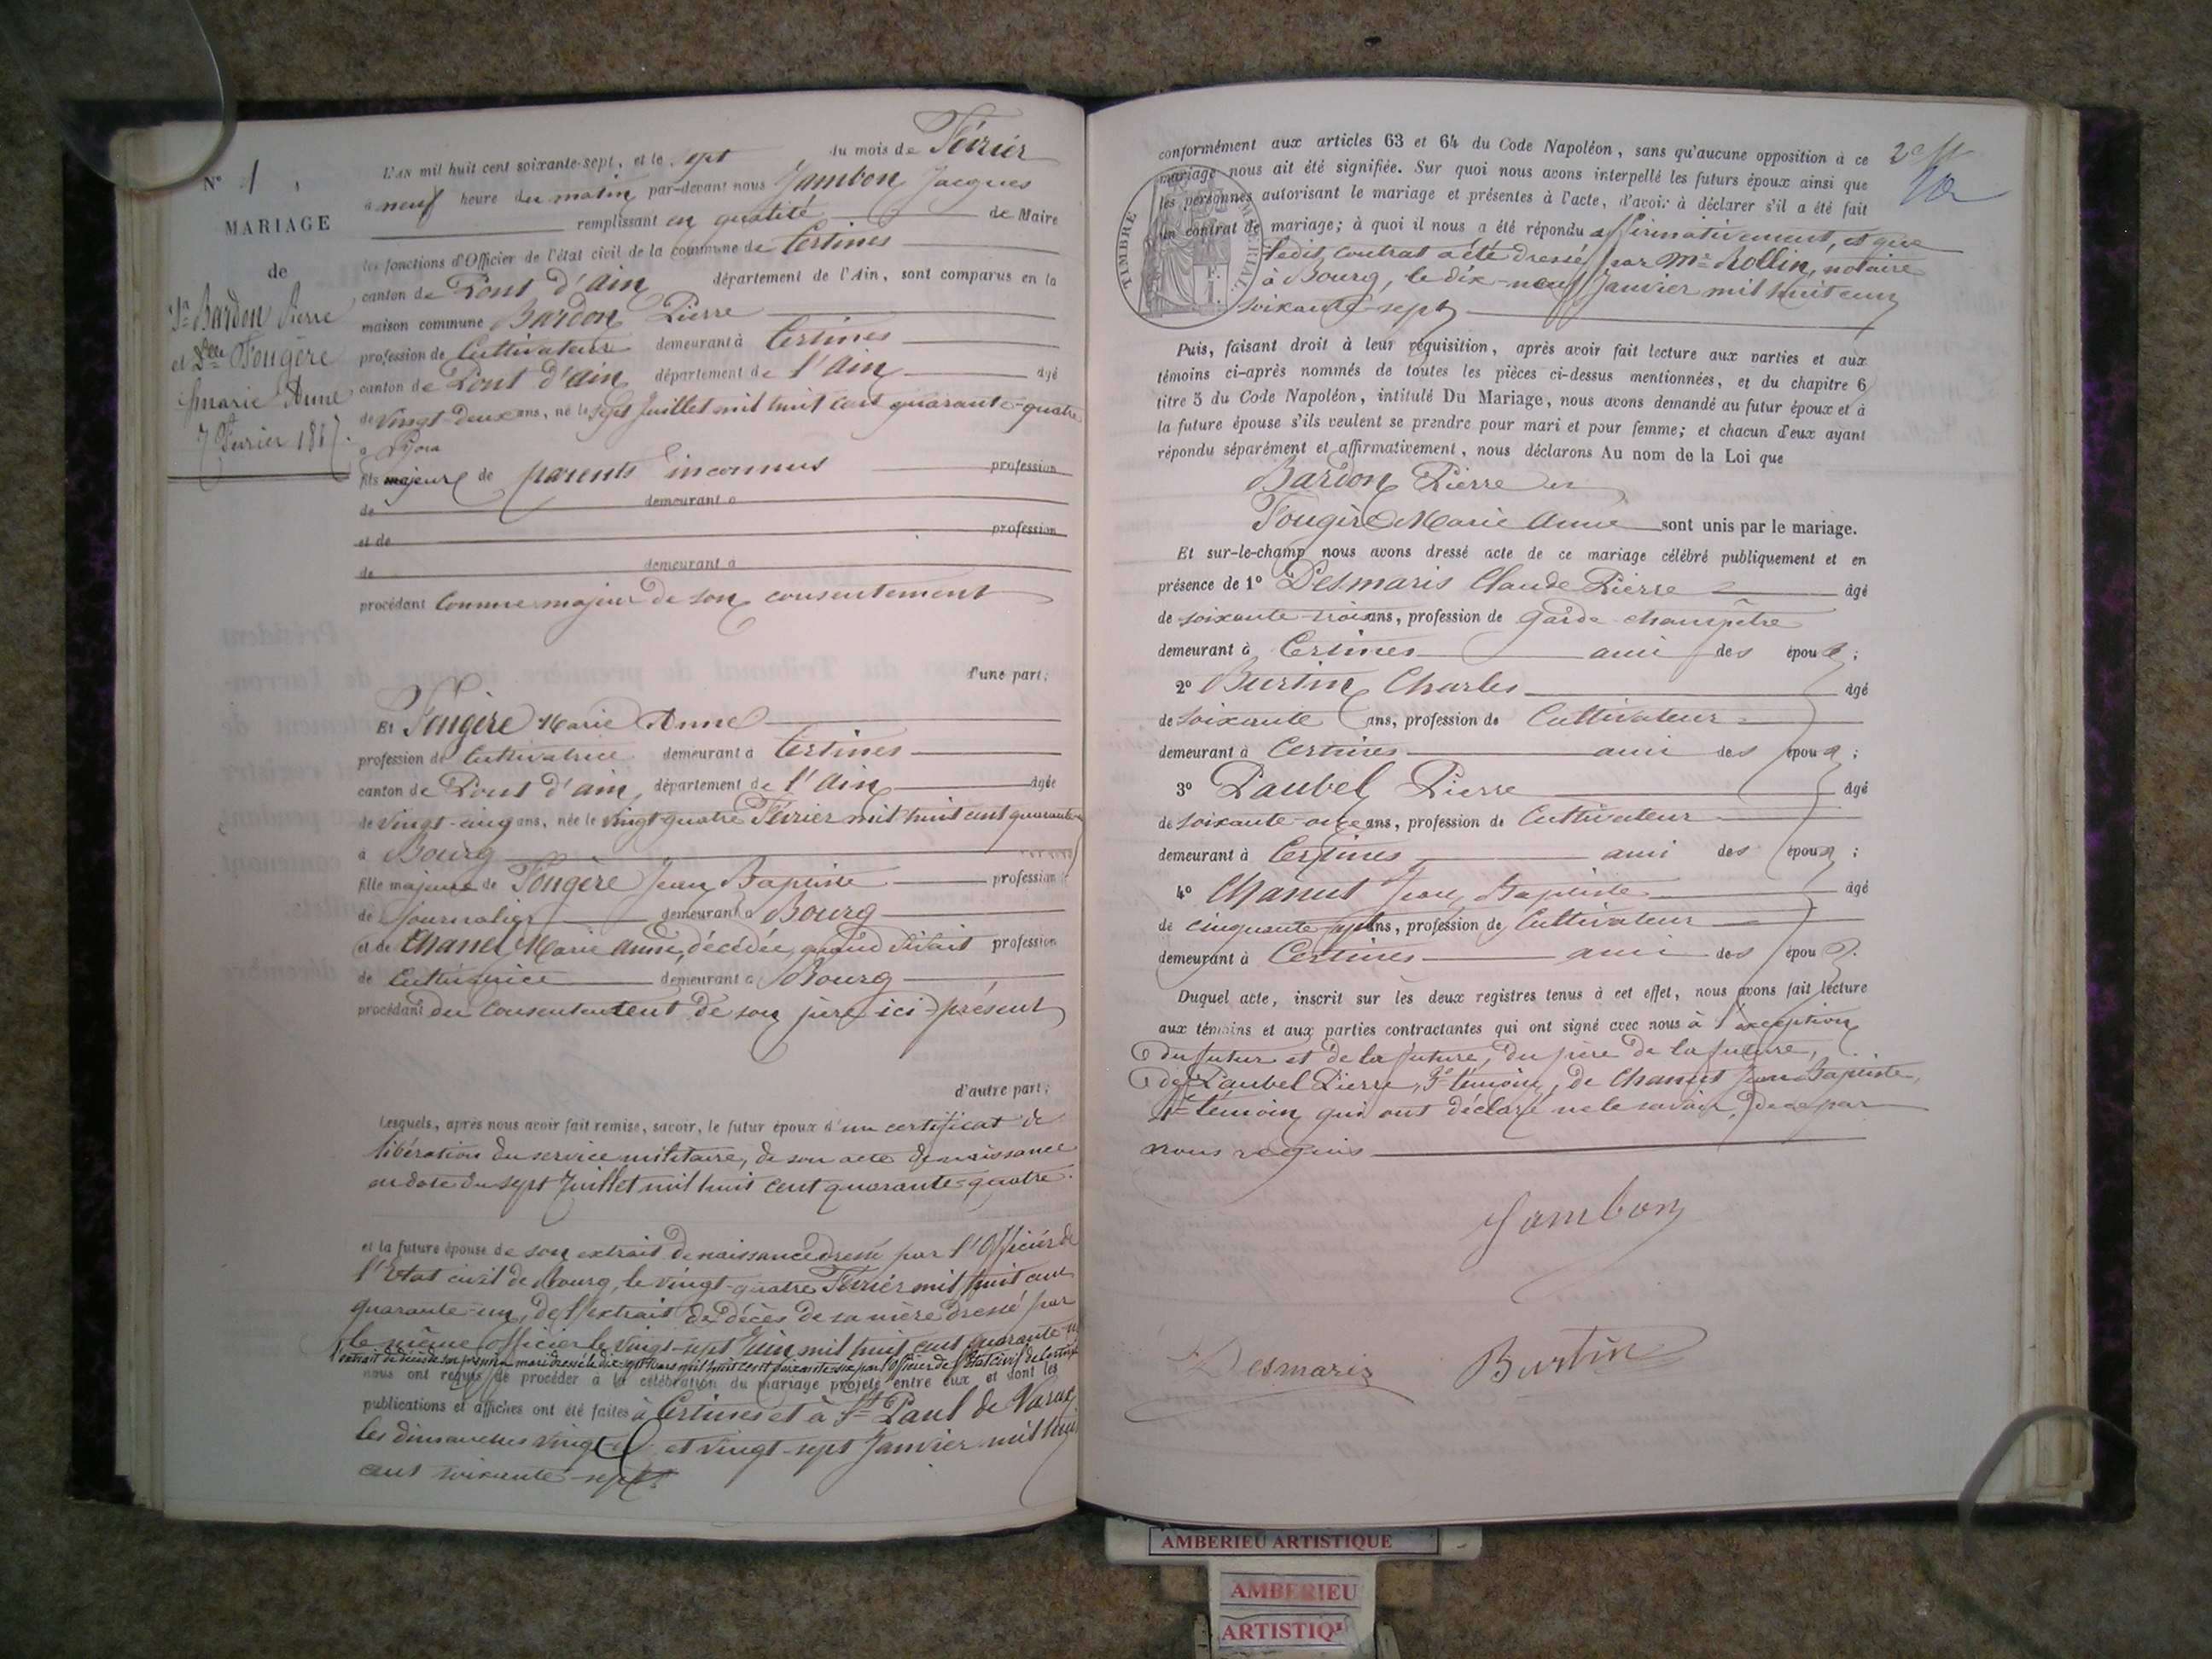 N° 1
MARIAGE
de
Sr Bardon Pierre
et Delle Fougère
Marie Anne
7 Février 1867.
L'AN mil huit cent soixante-sept, et le sept du mois de Février
à neuf heure du matin par-devant nous Jambon Jacques
remplissant en qualité de Maire
les fonctions d'Officier de l'état civil de la commune de Certines
canton de Pont d'Ain département de l'Ain, sont comparus en la
maison commune Bardon Pierre
profession de Cultivateur demeurant à Certines
canton de Pont d'ain département de l'Ain âgé
de vingt-deux ans, né le sept Juillet mil huit cent quarante-quatre
à Dijon
fils majeur de parents inconnus profession
de demeurant à
et de profession
de demeurant à
procédant comme majeur de son consentement
d'une part;
Et Fougère Marie Anne
profession de Cultivatrice demeurant à Certines
canton de Pont d'ain, département de l'Ain âgée
de vingt-cinq ans, née le vingt quatre Février mil huit cent quarante-un
à Bourg
fille majeure de Fougère Jean Baptiste profession
de Journalier demeurant à Bourg
et de Chanel Marie Anne, décédée, quand vivait profession
de Cultivatrice demeurant à Bourg
procédant du consentement de son père ici présent
d'autre part;
Lesquels, après nous avoir fait remise, savoir, le futur époux d'un certificat de
libération du service militaire, de son acte de naissance
en date du sept Juillet mil huit cent quarante-quatre.
et la future épouse de son extrait de naissance dressé par l'Officier de
l'Etat civil de Bourg, le vingt-quatre Février mil huit cent
quarante-un, de l'extrait de décès de sa mère dressé par
le même officier le vingt-sept Juin mil huit cent quarante
l'extrait de décès de son premier mari dressé le dix sept mars mil huit cent soixante six par l'Officier de l'Etat civil de Certines
nous ont requis de procéder à la célébration du mariage projeté entre eux et dont les
publications et affiches ont été faites à Certines et à St Paul de Varax
les dimanches vingt et vingt-sept Janvier mil huit
cent soixante-sept.
2e
conformément aux articles 63 et 64 du Code Napoléon, sans qu'aucune opposition à ce
mariage nous ait été signifiée. Sur quoi nous avons interpellé les futurs époux ainsi que
les personnes autorisant le mariage et présentes à l'acte, d'avoir à déclarer s'il a été fait
un contrat de mariage; à quoi il nous a été répondu affirmativement, et que
ledit contrat a été dressé par Me Rollin, notaire
à Bourg, le dix-neuf Janvier mil huit cent
soixante-sept
TIMBRE IMPÉRIAL
Puis, faisant droit à leur réquisition, après avoir fait lecture aux parties et aux
témoins ci-après nommés de toutes les pièces ci-dessus mentionnées, et du chapitre 6
titre 5 du Code Napoléon, intitulé Du Mariage, nous avons demandé au futur époux et à
la future épouse s'ils veulent se prendre pour mari et pour femme; et chacun d'eux ayant
répondu séparément et affirmativement, nous déclarons Au nom de la Loi que
Bardon Pierre et
Fougère Marie Anne sont unis par le mariage.
Et sur-le-champ nous avons dressé acte de ce mariage célébré publiquement et en
présence de 1° Desmaris Claude Pierre âgé
de soixante-trois ans, profession de garde champêtre
demeurant à Certines ami des époux;
2° Burtin Charles âgé
de soixante ans, profession de Cultivateur
demeurant à Certines ami des époux;
3° Paubel Pierre âgé
de soixante-onze ans, profession de Cultivateur
demeurant à Certines ami des époux;
4° Chanut Jean Baptiste âgé
de cinquante sept ans, profession de Cultivateur
demeurant à Certines ami des époux.
Duquel acte, inscrit sur les deux registres tenus à cet effet, nous avons fait lecture
aux témoins et aux parties contractantes qui ont signé avec nous à l'exception
du futur et de la future, du père de la future,
de Paubel Pierre, 3e témoin, de Chanut Jean Baptiste,
4e témoin qui ont déclaré ne le savoir, de ce par
nous requis
Jambon
Desmaris Burtin
AMBERIEU ARTISTIQUE
AMBERIEU
ARTISTIQ